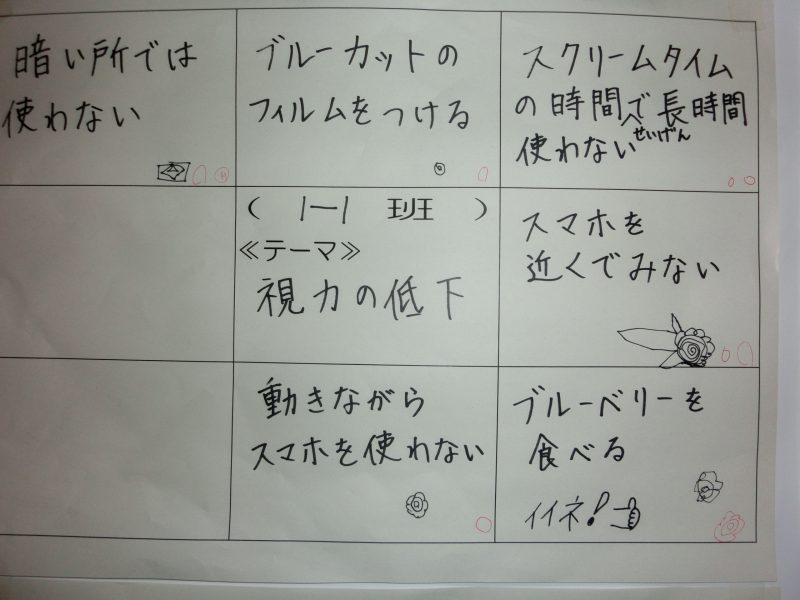 暗い所では
使わない
ブルーカットの
フィルムをつける
スクリームタイム
の時間で長時間
せいげん
使わない
( 1-1 班 )
≪テーマ≫
視力の低下
スマホを
近くでみない
動きながら
スマホを使わない
ブルーベリーを
食べる
イイネ!